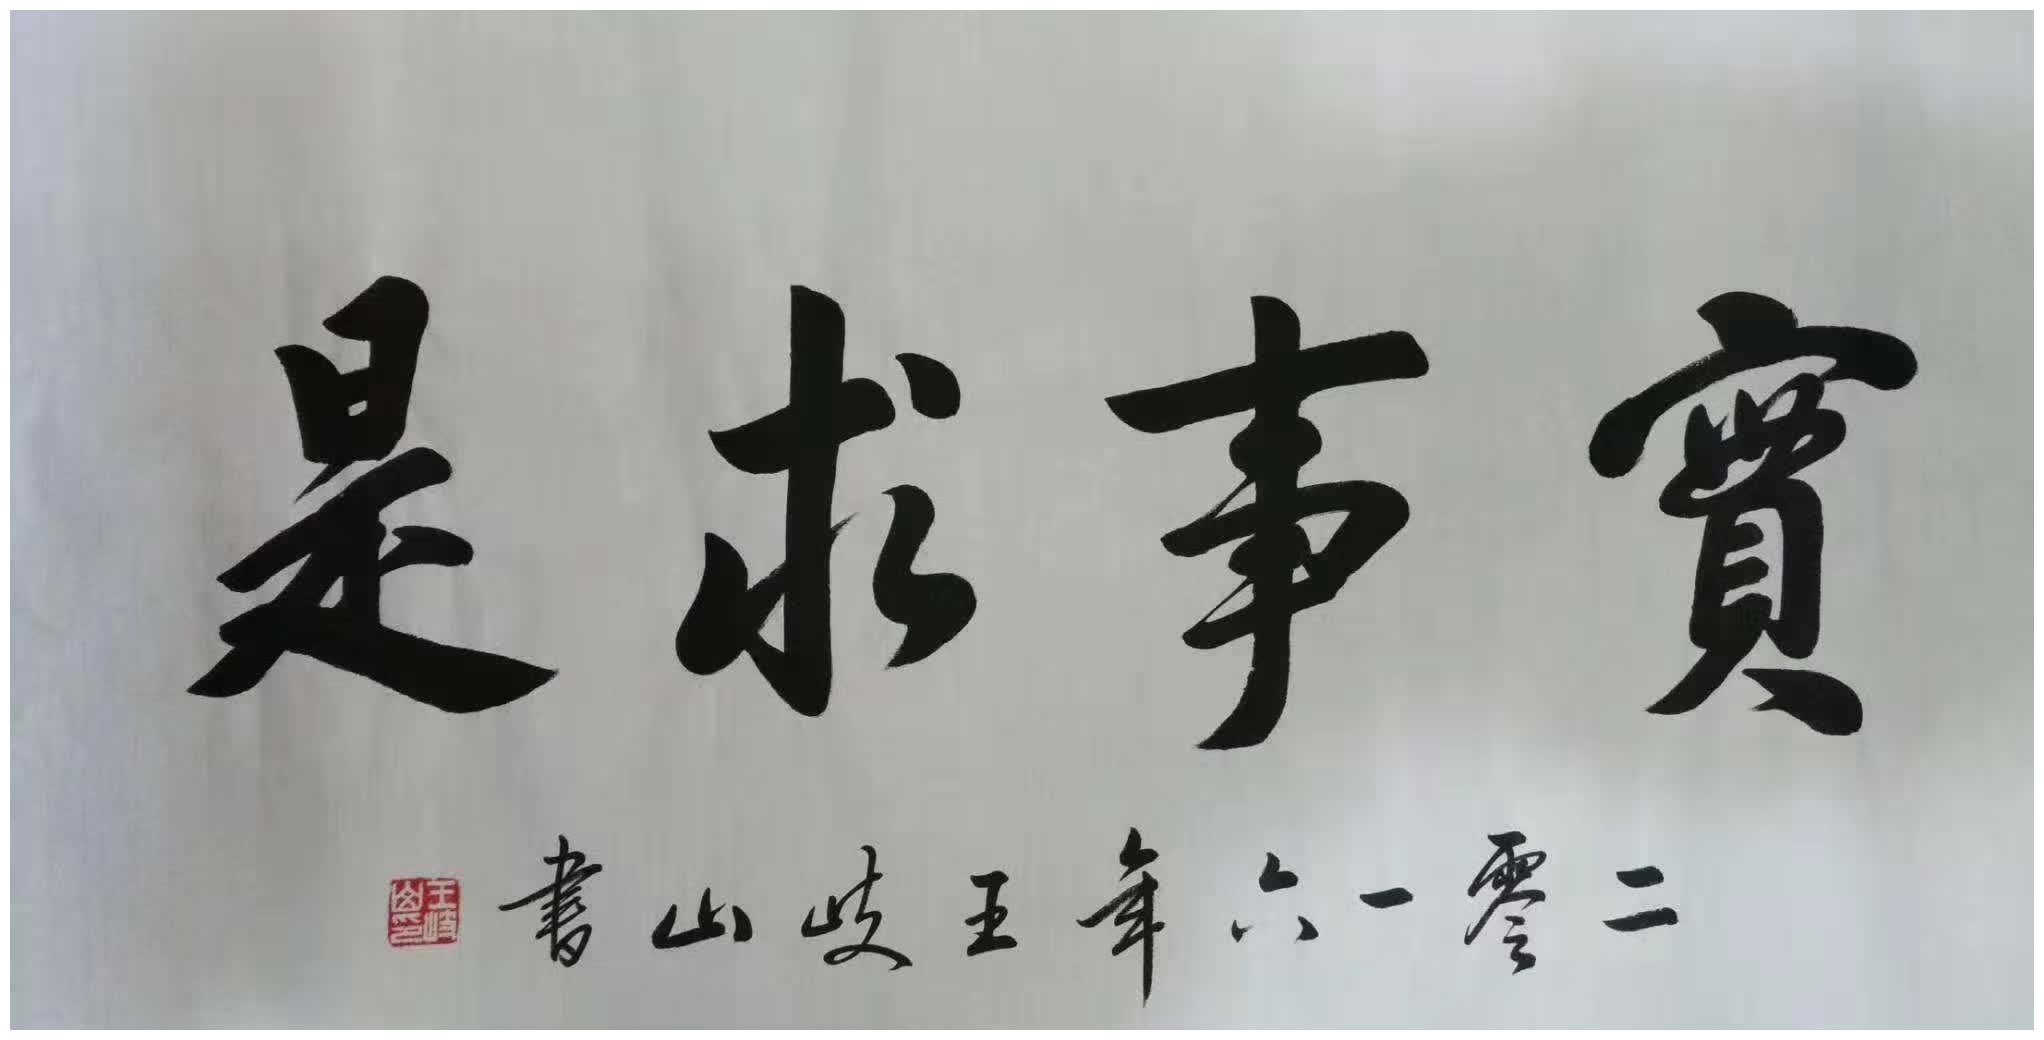 實事求是
二零一六年王岐山書
王岐山印